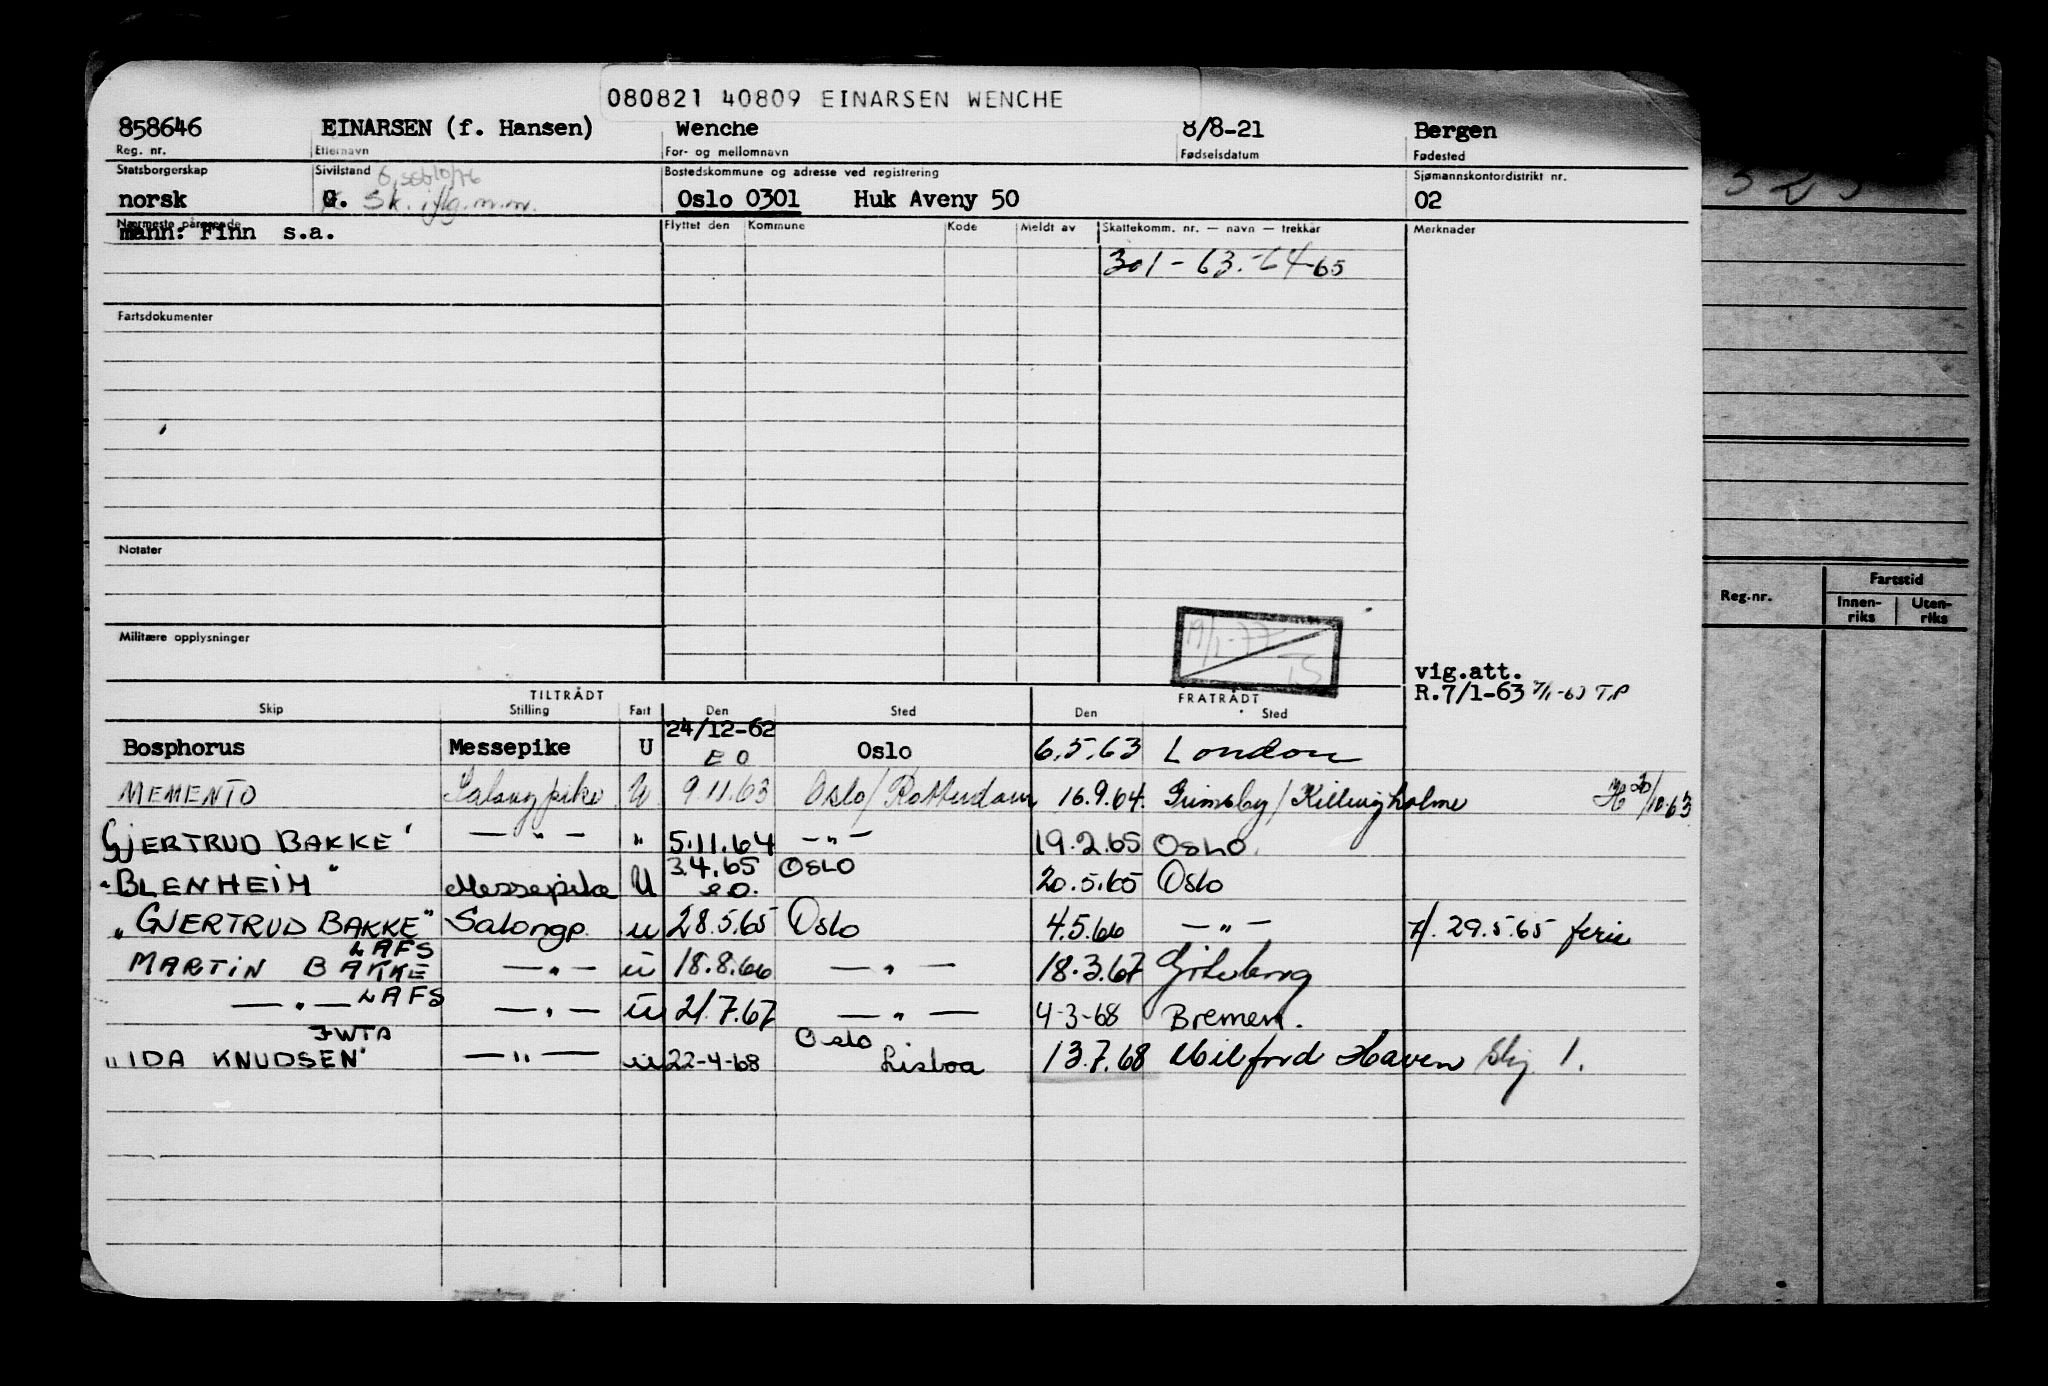 080821 40809 EINARSEN WENCHE
858646 EINARSEN (f. Hansen) Wenche 8/8-21 Bergen
Reg. nr. Etternavn For- og mellomnavn Fødselsdatum Fødested
Statsborgerskap Sivilstand Bostedskommune og adresse ved registrering Sjømannskontordistrikt nr.
norsk G. Sk. iflg. m.m. Oslo 0301 Huk Aveny 50 02
Nærmeste pårørende Flyttet den Kommune Kode Meldt av Skattekomm. nr. — navn — trekkår Merknader
mann: Finn s.a.
301 - 63.-64-65
Fartsdokumenter
Notater
Reg.nr. Fartstid
Innen-riks Uten-riks
19/1-77 TS
Militære opplysninger
vig.att.
R.7/1-63 7/1-63 T.P
TILTRÅDT FRATRÅDT
Skip Stilling Fart Den Sted Den Sted
Bosphorus Messepike U 24/12-62 EO Oslo 6.5.63 London
MEMENTO Salongpike U. 9.11.63 Oslo/Rotterdam 16.9.64. Grimsby/Killingholme 20/10-63
GJERTRUD BAKKE" — " — " 5.11.64 — " — 19.2.65 OSLO.
"BLENHEIM" Messepike U 3.4.65 e.o. OSLO 20.5.65 Oslo
"GJERTRUD BAKKE" Salongp. u 28.5.65 Oslo 4.5.66 — " — 29.5.65 ferie
LAFS
MARTIN BAKKE — " — u 18.8.66 — " — 18.3.67 Göteborg
— " — LAFS — " — u 21.7.67 — " — 4-3-68 Bremen.
JWTA
"IDA KNUDSEN" — " — u 22-4-68 Oslo Lisboa 13.7.68 Milford Haven Skj. 1.